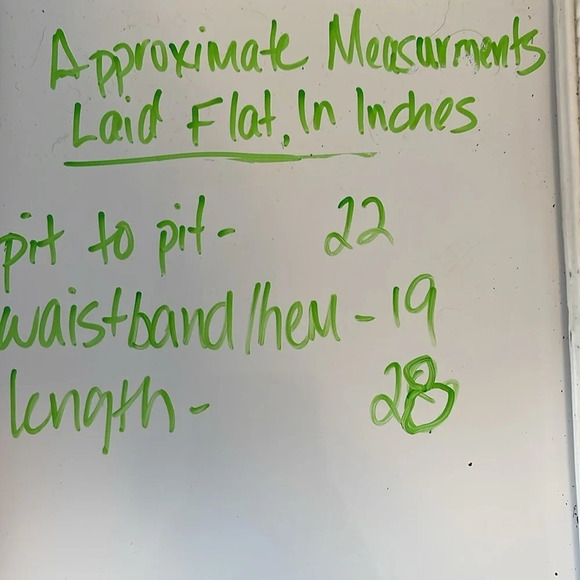 Approximate Measurments
Laid Flat, In Inches
pit to pit - 22
waistband/hem - 19
length - 28